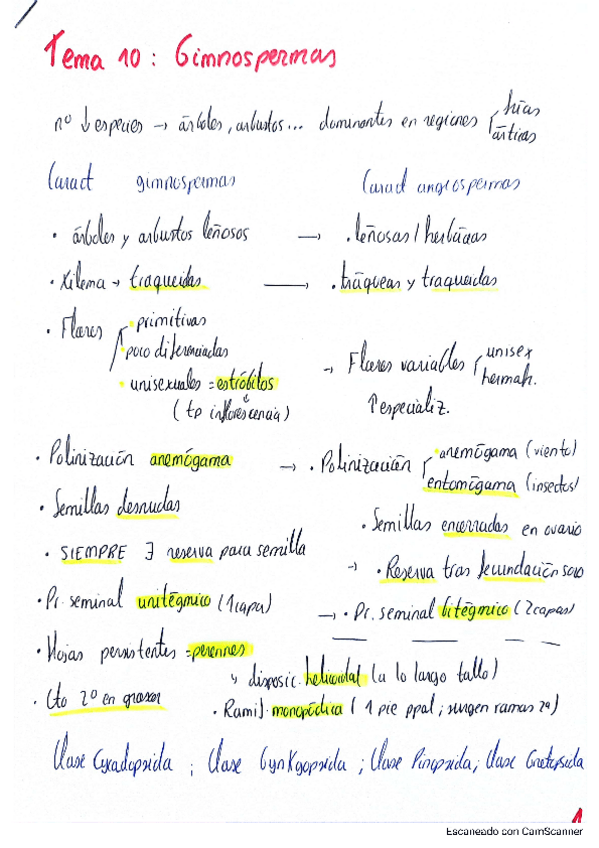 Tema 10: Gimnospermas
nº ↓ especies → árboles, arbustos... dominantes en regiones frías
árticas
Caract gimnospermas
Caract angiospermas
· árboles y arbustos leñosos → · leñosas / herbáceas
· Xilema → traqueidas → · tráqueas y traqueidas
· Flores · primitivas
· poco diferenciadas
· unisexuales = estróbilos
(tp inflorescencia)
→ Flores variables unisex
hermafr.
↑ especializ.
· Polinización anemógama → · Polinización · anemógama (viento)
entomógama (insectos)
· Semillas desnudas
· Semillas encerradas en ovario
· SIEMPRE ∃ reserva para semilla
→ · Reserva tras fecundación solo
· Pr. seminal unitégmico (1 capa) → · Pr. seminal bitégmico (2 capas)
· Hojas persistentes = perennes
↳ disposic. helicoidal (a lo largo tallo)
· Cto 2º en grosor · Ramif. monopódica (1 pie ppal; surgen ramas 2ª)
Clase Cycadopsida ; Clase Gynkgopsida ; Clase Pinopsida ; Clase Gnetopsida
1
Escaneado con CamScanner